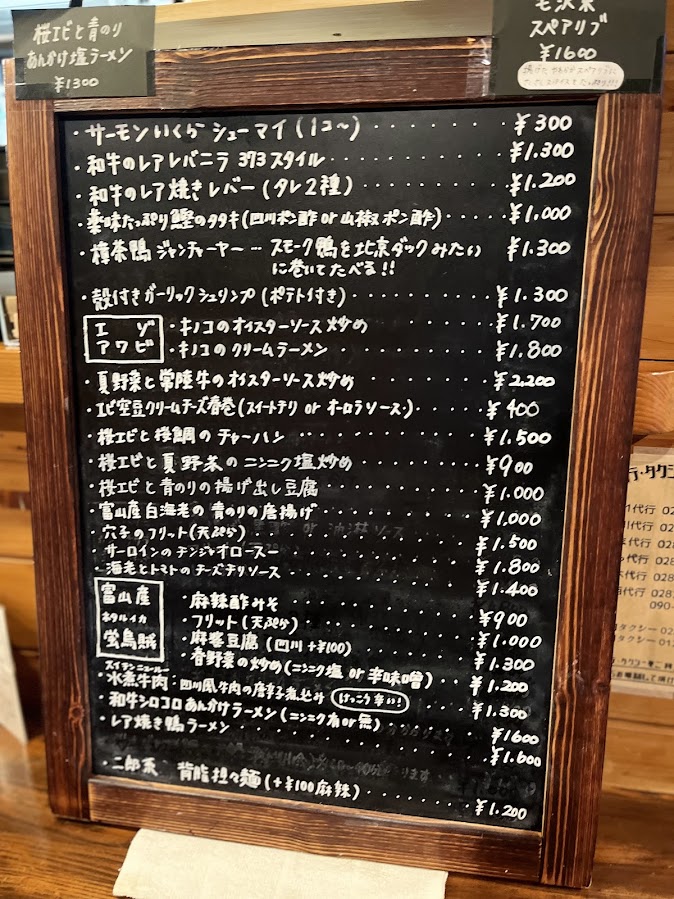 桜エビと青のり
あんかけ塩ラーメン
¥1300
毛沢東
スペアリブ
¥1600
・サーモンいくらシューマイ(1コ〜)・・・・・・・¥300
・和牛のレアレバニラ 373スタイル・・・・・・・¥1.300
・和牛のレア焼きレバー(タレ2種)・・・・・・・¥1.200
・薬味たっぷり鰹のタタキ(四川ポン酢 or 山椒ポン酢)・・・・¥1.000
・樟茶鴨 ジャンチャーヤー … スモーク鴨を北京ダックみたい ¥1.300
に巻いてたべる!!
・殻付きガーリックシュリンプ(ポテト付き)・・・・・・¥1.300
エゾ
アワビ
・キノコのオイスターソース炒め・・・・・・¥1.700
・キノコのクリームラーメン・・・・・・¥1.800
・夏野菜と常陸牛のオイスターソース炒め・・・・・・¥2200
・エビ空豆クリームチーズ春巻(スイートチリ or オーロラソース・)・・・¥400
・桜エビと桜鯛のチャーハン・・・・・・¥1.500
・桜エビと夏野菜のニンニク塩炒め・・・・・・¥900
・桜エビと青のりの揚げ出し豆腐・・・・・・¥1.000
・富山産白海老の青のりの唐揚げ・・・・・・¥1.000
・穴子のフリット(天ぷら)・・・・・・¥1.500
・サーロインのチンジャオロースー・・・・・・¥1.800
・海老とトマトのチーズチリソース・・・・・・¥1.400
富山産
ホタルイカ
蛍烏賊
・麻辣酢みそ・・・・・・¥900
・フリット(天ぷら)・・・・・・¥1.000
・麻婆豆腐(四川+¥100)・・・・・・¥1.300
・春野菜の炒め(ニンニク塩 or 辛味噌)・・・・¥1.200
スイヂュニューロー
・水煮牛肉:四川風牛肉の唐辛子煮込み けっこう辛い!・・・・¥1.300
・和牛シロコロあんかけラーメン(ニンニク有or無)・・・・¥1600
・レア焼き鴨ラーメン・・・・・・¥1.600
・二郎系 背脂担々麺(+¥100麻辣)・・・・・・¥1.200
代行・タクシー
代行 028
代行 028
タクシー 028
タクシー
090-